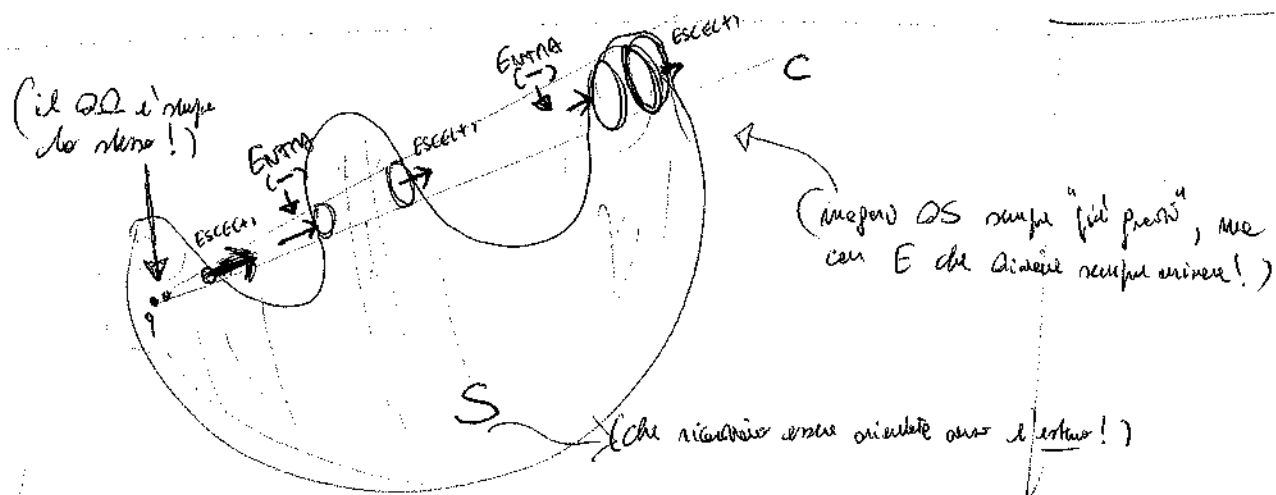 (il dΩ è sempre
lo stesso!)
ENTRA
(-)
ESCE(+)
ENTRA
(-)
ESCE(+)
ESCE(+)
C
q
(magari dS sempre "più grossi", ma
con E che diviene sempre minore!)
S
(che ricordiamo essere orientate verso l'esterno!)